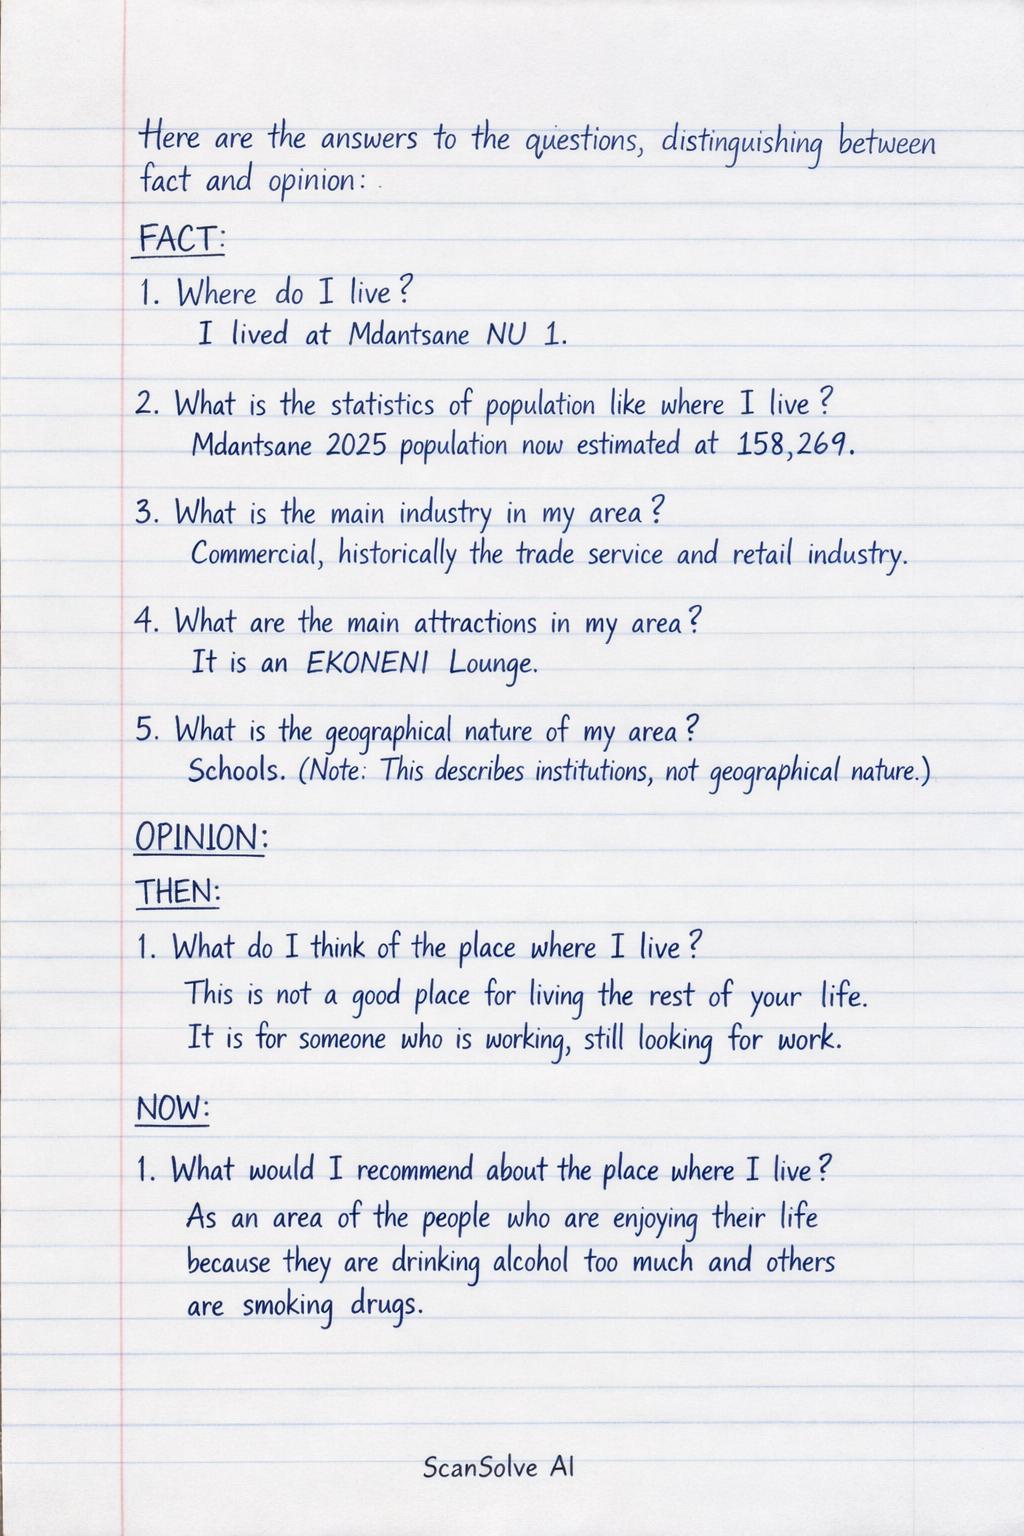 Here are the answers to the questions, distinguishing between
fact and opinion:
FACT:
1. Where do I live?
I lived at Mdantsane NU 1.
2. What is the statistics of population like where I live?
Mdantsane 2025 population now estimated at 158,269.
3. What is the main industry in my area?
Commercial, historically the trade service and retail industry.
4. What are the main attractions in my area?
It is an EKONENI Lounge.
5. What is the geographical nature of my area?
Schools. (Note: This describes institutions, not geographical nature.)
OPINION:
THEN:
1. What do I think of the place where I live?
This is not a good place for living the rest of your life.
It is for someone who is working, still looking for work.
NOW:
1. What would I recommend about the place where I live?
As an area of the people who are enjoying their life
because they are drinking alcohol too much and others
are smoking drugs.
ScanSolve AI